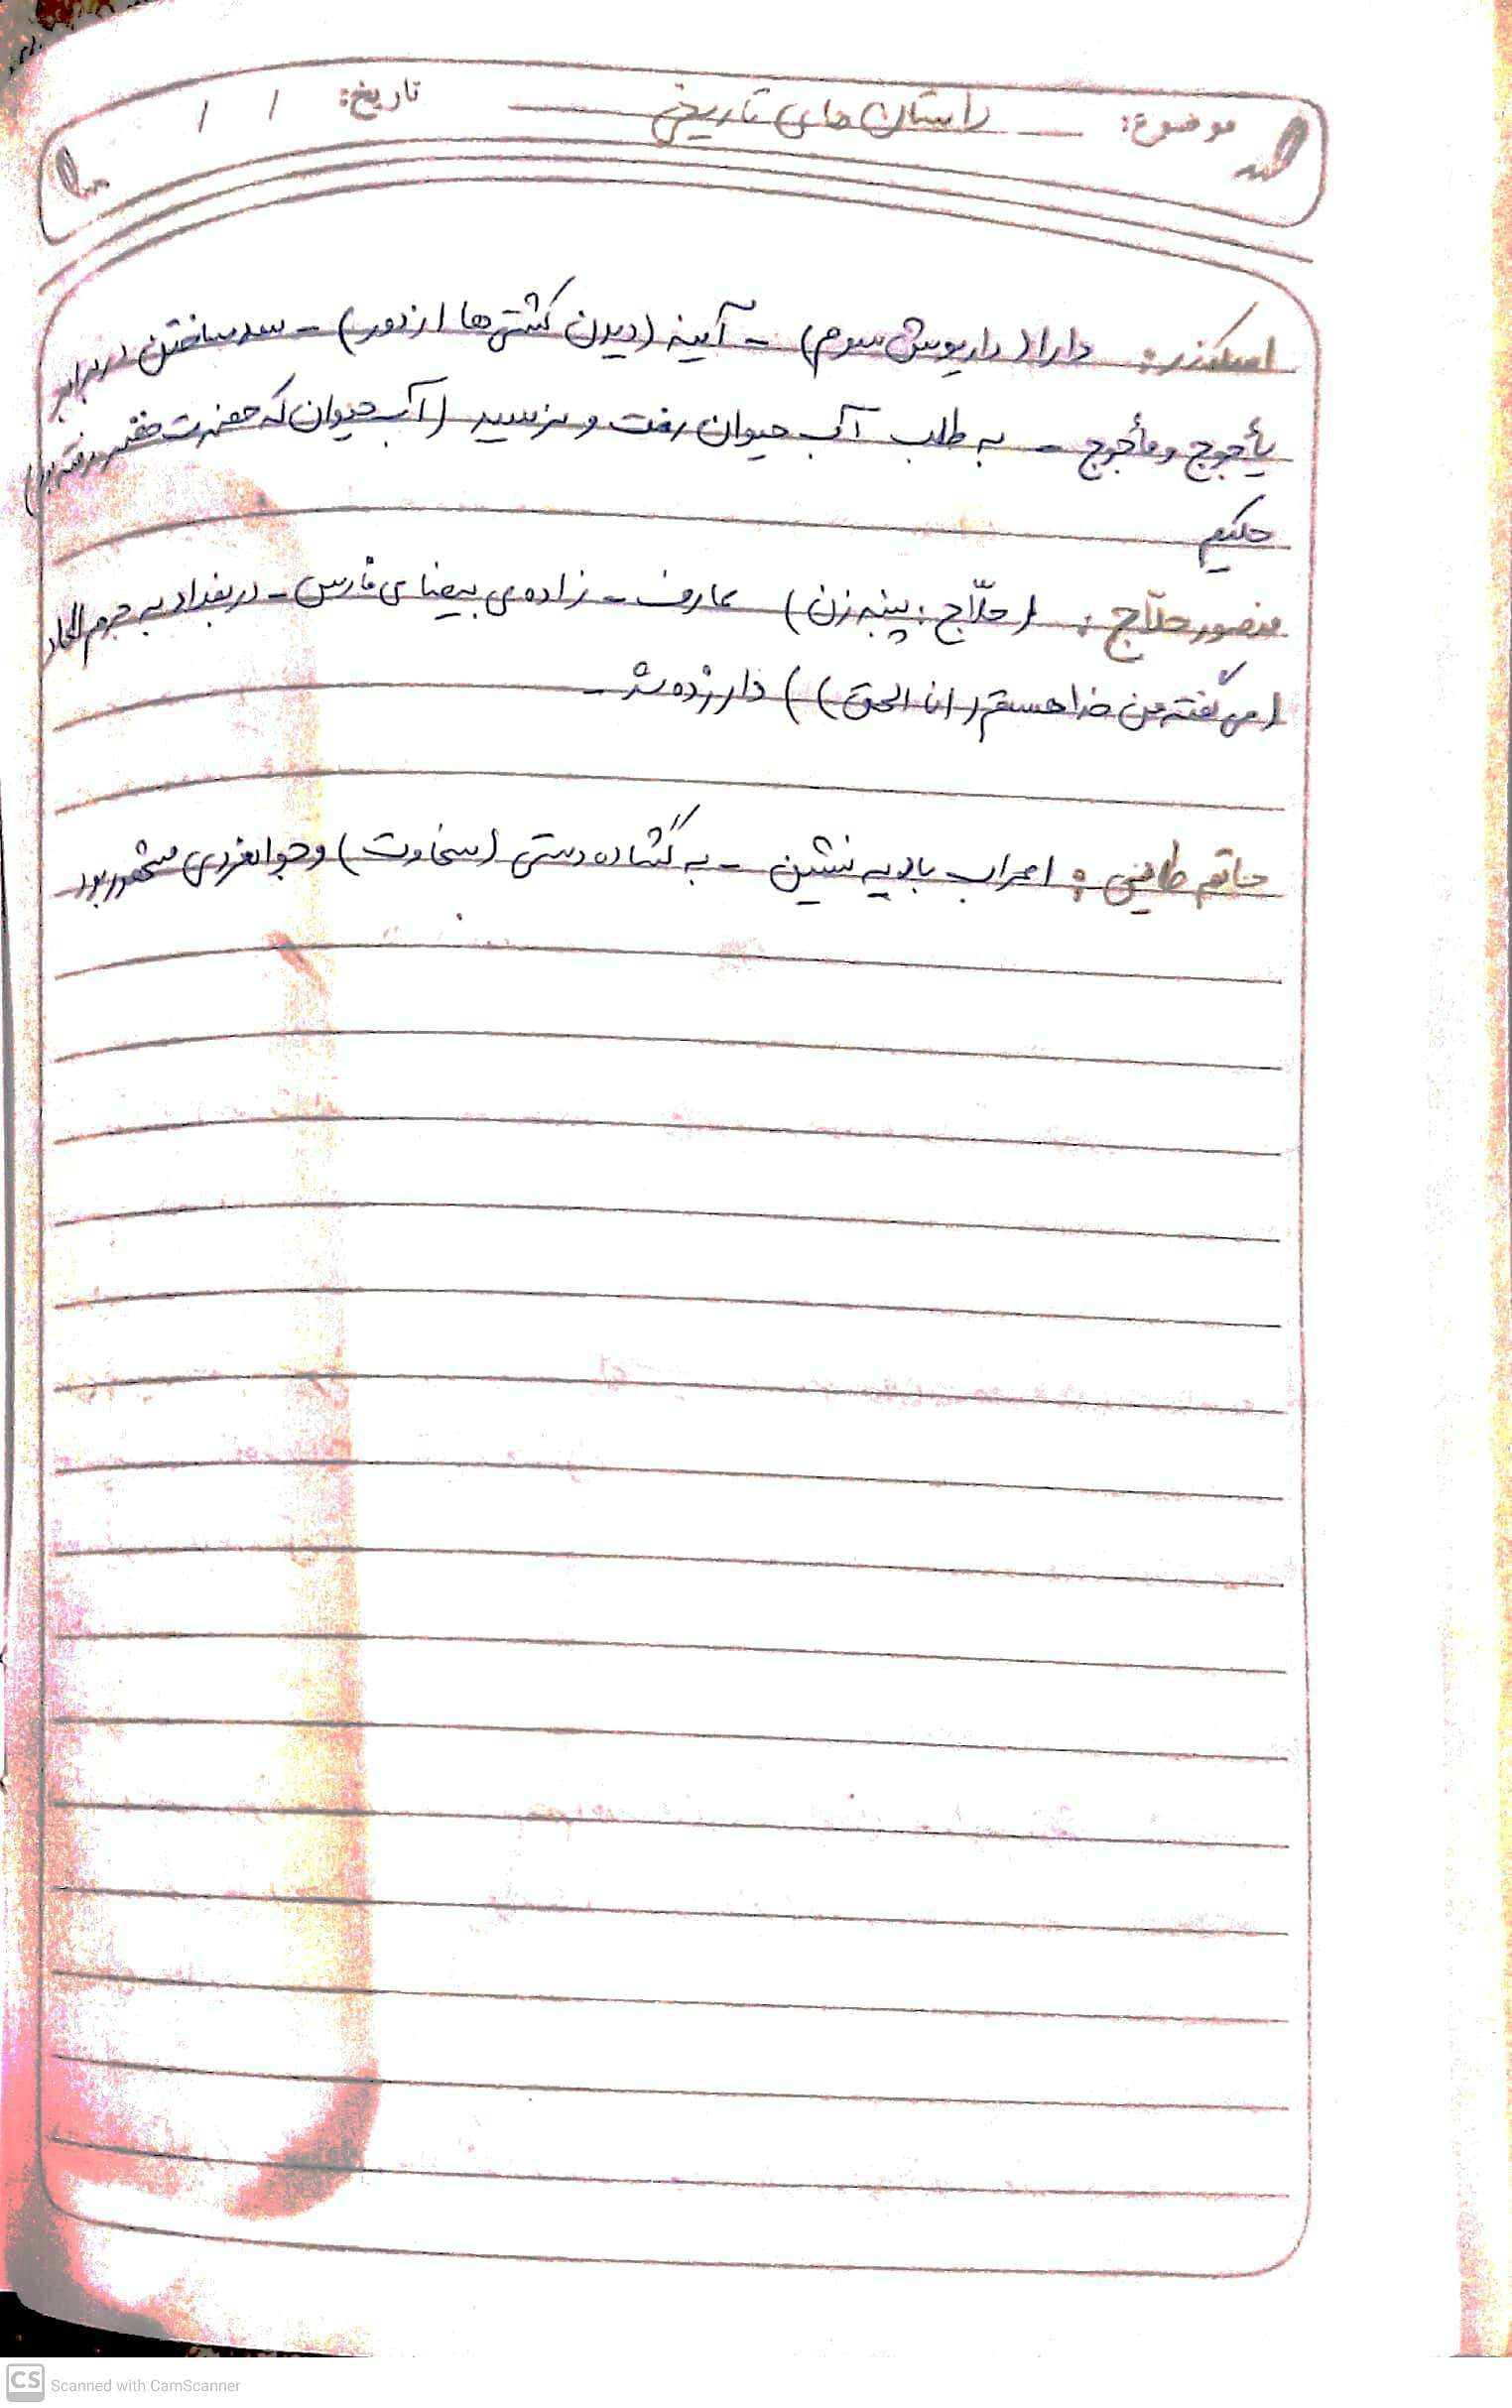 موضوع: داستان های تاریخی تاریخ: / /
اسکندر: دارا (داریوش سوم) - آیینه (دیدن کشتی ها از دور) - سد ساختن در برابر
یأجوج و مأجوج - به طلب آب حیوان رفت و نرسید (آب حیوان که حضرت خضر رفته بود)
حکیم
منصور حلّاج: (حلّاج: پنبه زن) عارف - زاده ی بیضای فارس - در بغداد به جرم الحاد
(می گفته من خدا هستم (انا الحق)) دار زده شد -
حاتم طایی: اعراب بادیه نشین - به گشاده دستی (سخاوت) و جوانمردی مشهور بود
CS Scanned with CamScanner